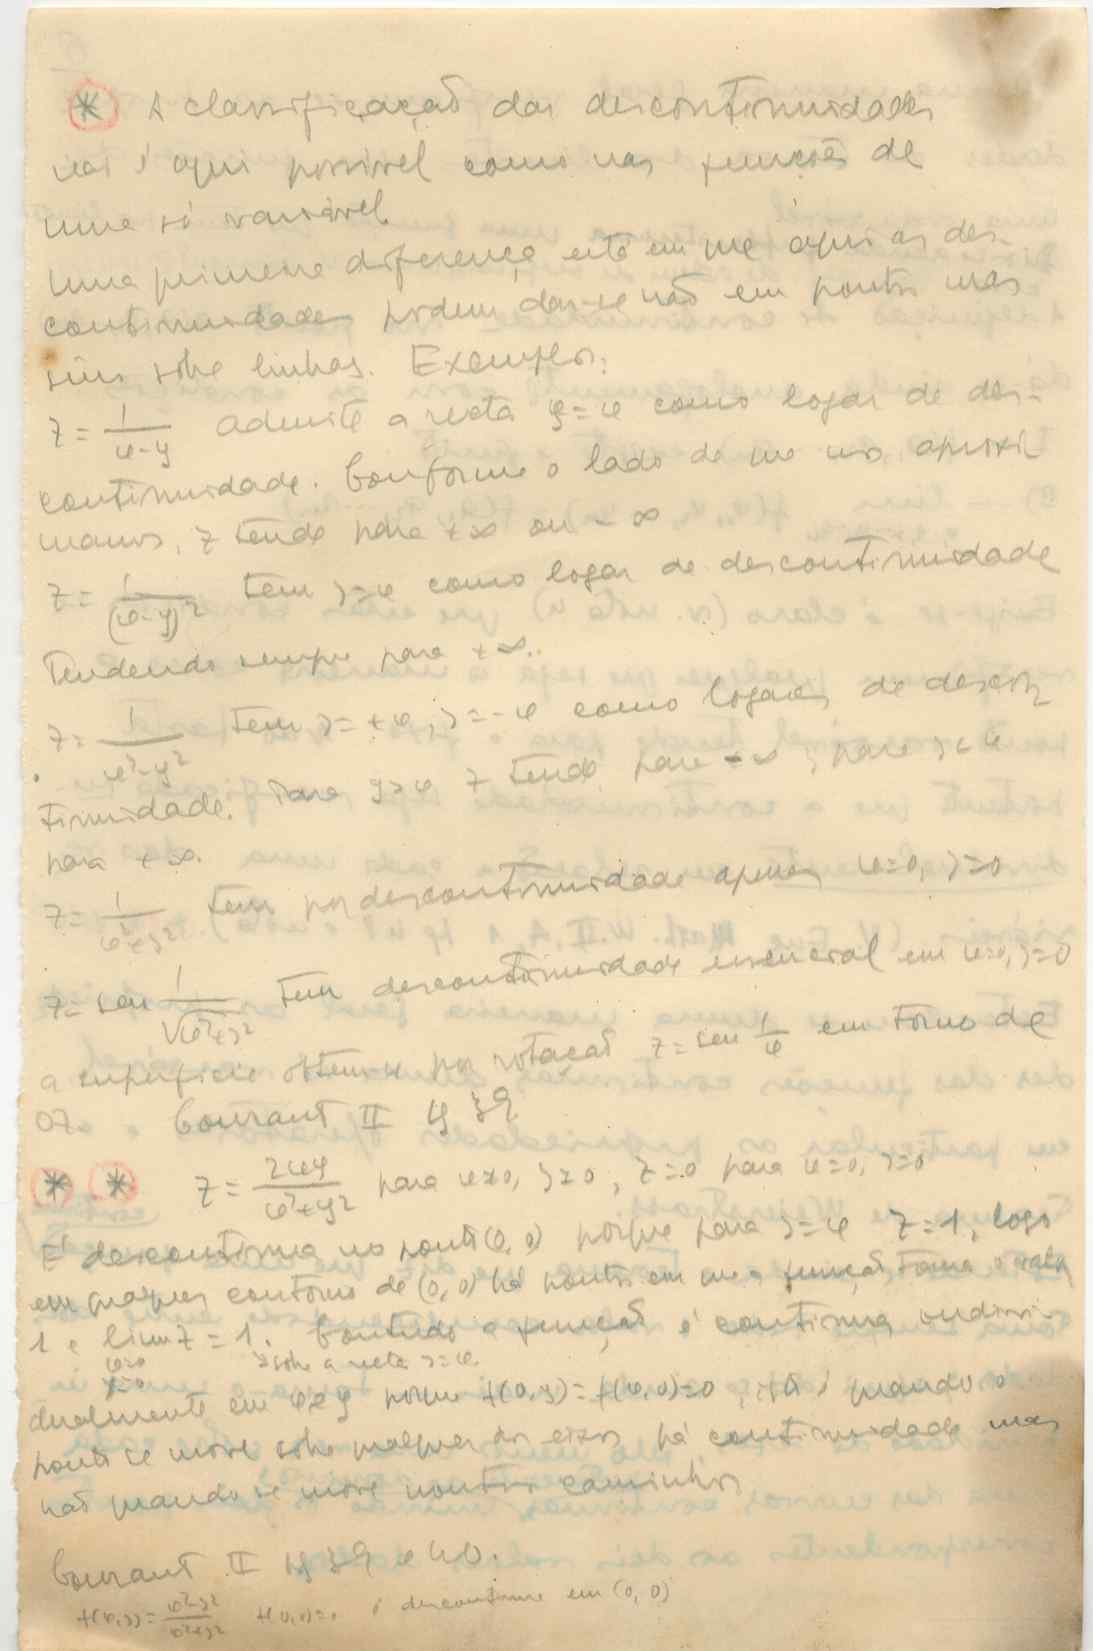 * A classificação das descontinuidades
não é aqui possível como nas funções de
uma só variável.
Uma primeira diferença está em que aqui as des-
continuidades podem dar-se não em pontos mas
sim sobre linhas. Exemplos:
z = 1/(x-y) admite a recta y=x como logar de des-
continuidade. Conforme o lado de que nos aproxi
mamos, z tende para +∞ ou -∞
z = 1/(x-y)² tem y=x como logar de descontinuidade
tendendo sempre para +∞..
z = 1/(x²-y²) tem y=+x, y=-x como logares de descon
tinuidade. Para y>x z tende para -∞; para y<x
para +∞.
z = 1/(x²+y²) tem por descontinuidade apenas x=0, y=0
z = sen 1/√(x²+y²) tem descontinuidade essencial em x=0, y=0
a superfície obtem-se por rotação z = sen 1/x em torno de
OZ Courant II pg 39
* * z = 2xy/(x²+y²) para x≠0, y≠0; z=0 para x=0, y=0
É descontínua no ponto (0, 0) porque para y=x z=1, logo
em qualquer contorno de (0, 0) há pontos em que a função toma o valor
1 e lim z = 1. Contudo a função é contínua indivi-
x=0 y=0 sobre a recta y=x.
dualmente em x e y porque f(0,y)=f(x,0)=0, isto é quando o
ponto se move sobre qualquer dos eixos há continuidade mas
não quando se move noutros caminhos
Courant II pg 39 e 40.
f(x,y) = (x²-y²)/(x²+y²) f(0,0)=0 é descontínua em (0, 0)